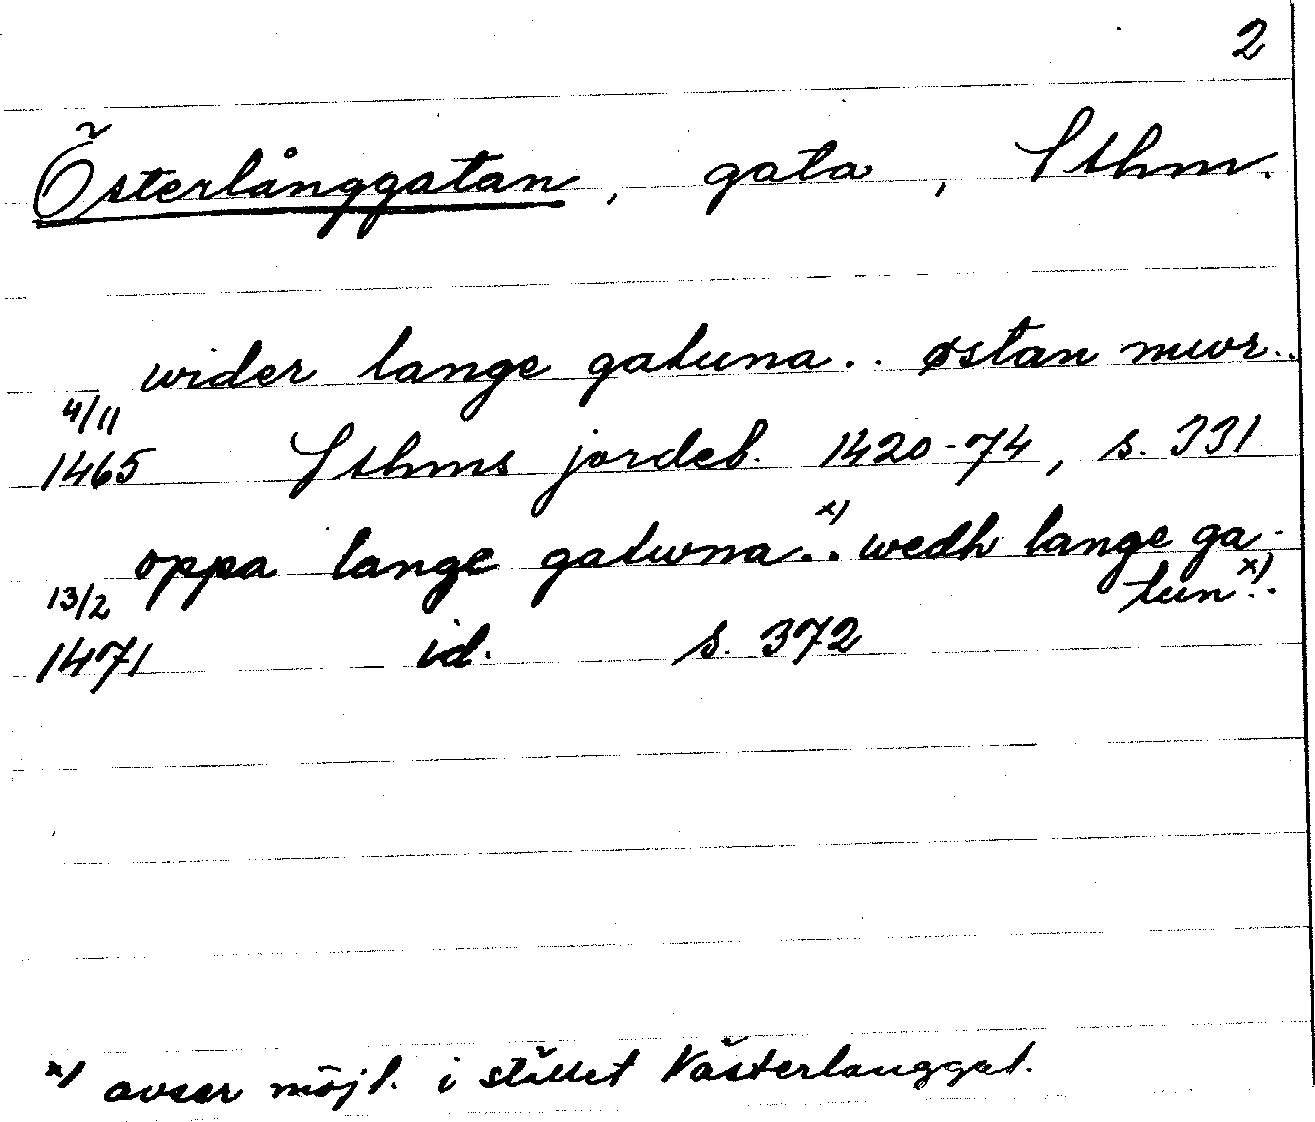 2
Österlånggatan, gata, Sthm.
wider lange gatuna.. østan mwr..
4/11
1465 Sthms jordeb. 1420-74, s. 331
oppa lange gatwna..x) wedh lange ga-
tun..x)
13/2
1471 id. s. 372
x) avser möjl. i stället Västerlånggat.